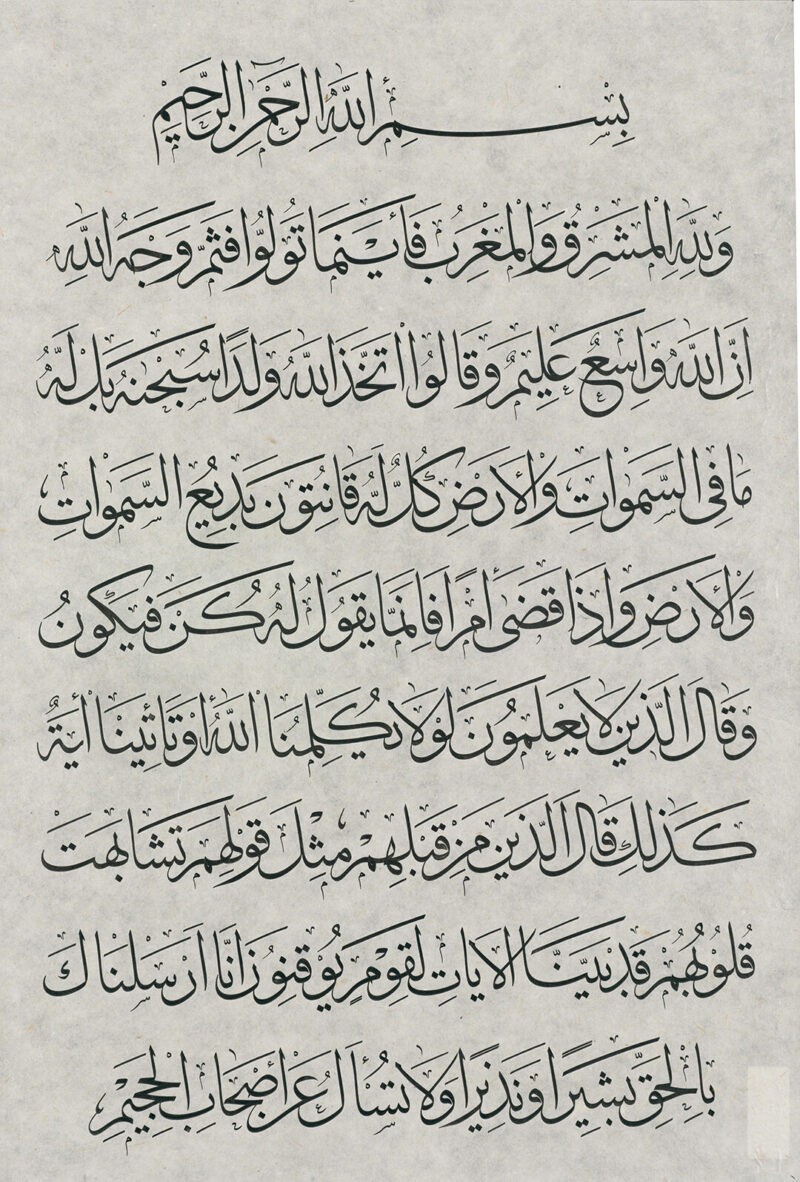 بِسْمِ اللَّهِ الرَّحْمٰنِ الرَّحِيمِ
وَلِلَّهِ الْمَشْرِقُ وَالْمَغْرِبُ فَأَيْنَمَا تُوَلُّوا فَثَمَّ وَجْهُ اللَّهِ
اِنَّ اللَّهَ وَاسِعٌ عَلِيمٌ وَقَالُوا اتَّخَذَ اللَّهُ وَلَدًا سُبْحٰنَهُ بَلْ لَهُ
مَا فِي السَّمٰوَاتِ وَالْاَرْضِ كُلٌّ لَهُ قَانِتُونَ بَدِيعُ السَّمٰوَاتِ
وَالْاَرْضِ وَاِذَا قَضٰى أَمْرًا فَاِنَّمَا يَقُولُ لَهُ كُنْ فَيَكُونُ
وَقَالَ الَّذِينَ لَا يَعْلَمُونَ لَوْلَا يُكَلِّمُنَا اللَّهُ أَوْ تَأْتِينَا أٰيَةٌ
كَذٰلِكَ قَالَ الَّذِينَ مِنْ قَبْلِهِمْ مِثْلَ قَوْلِهِمْ تَشَابَهَتْ
قُلُوبُهُمْ قَدْ بَيَّنَّا الْاٰيَاتِ لِقَوْمٍ يُوقِنُونَ اِنَّا اَرْسَلْنَاكَ
بِالْحَقِّ بَشِيرًا وَنَذِيرًا وَلَا تُسْأَلُ عَنْ أَصْحَابِ الْجَحِيمِ